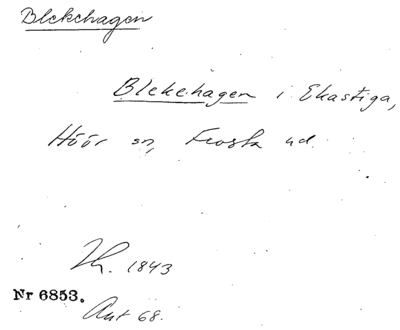 Blekehagen
Blekehagen i Ekastiga,
Höör sn, Frosta hd.
Th. 1843
Nr 6853.
Ant 68.